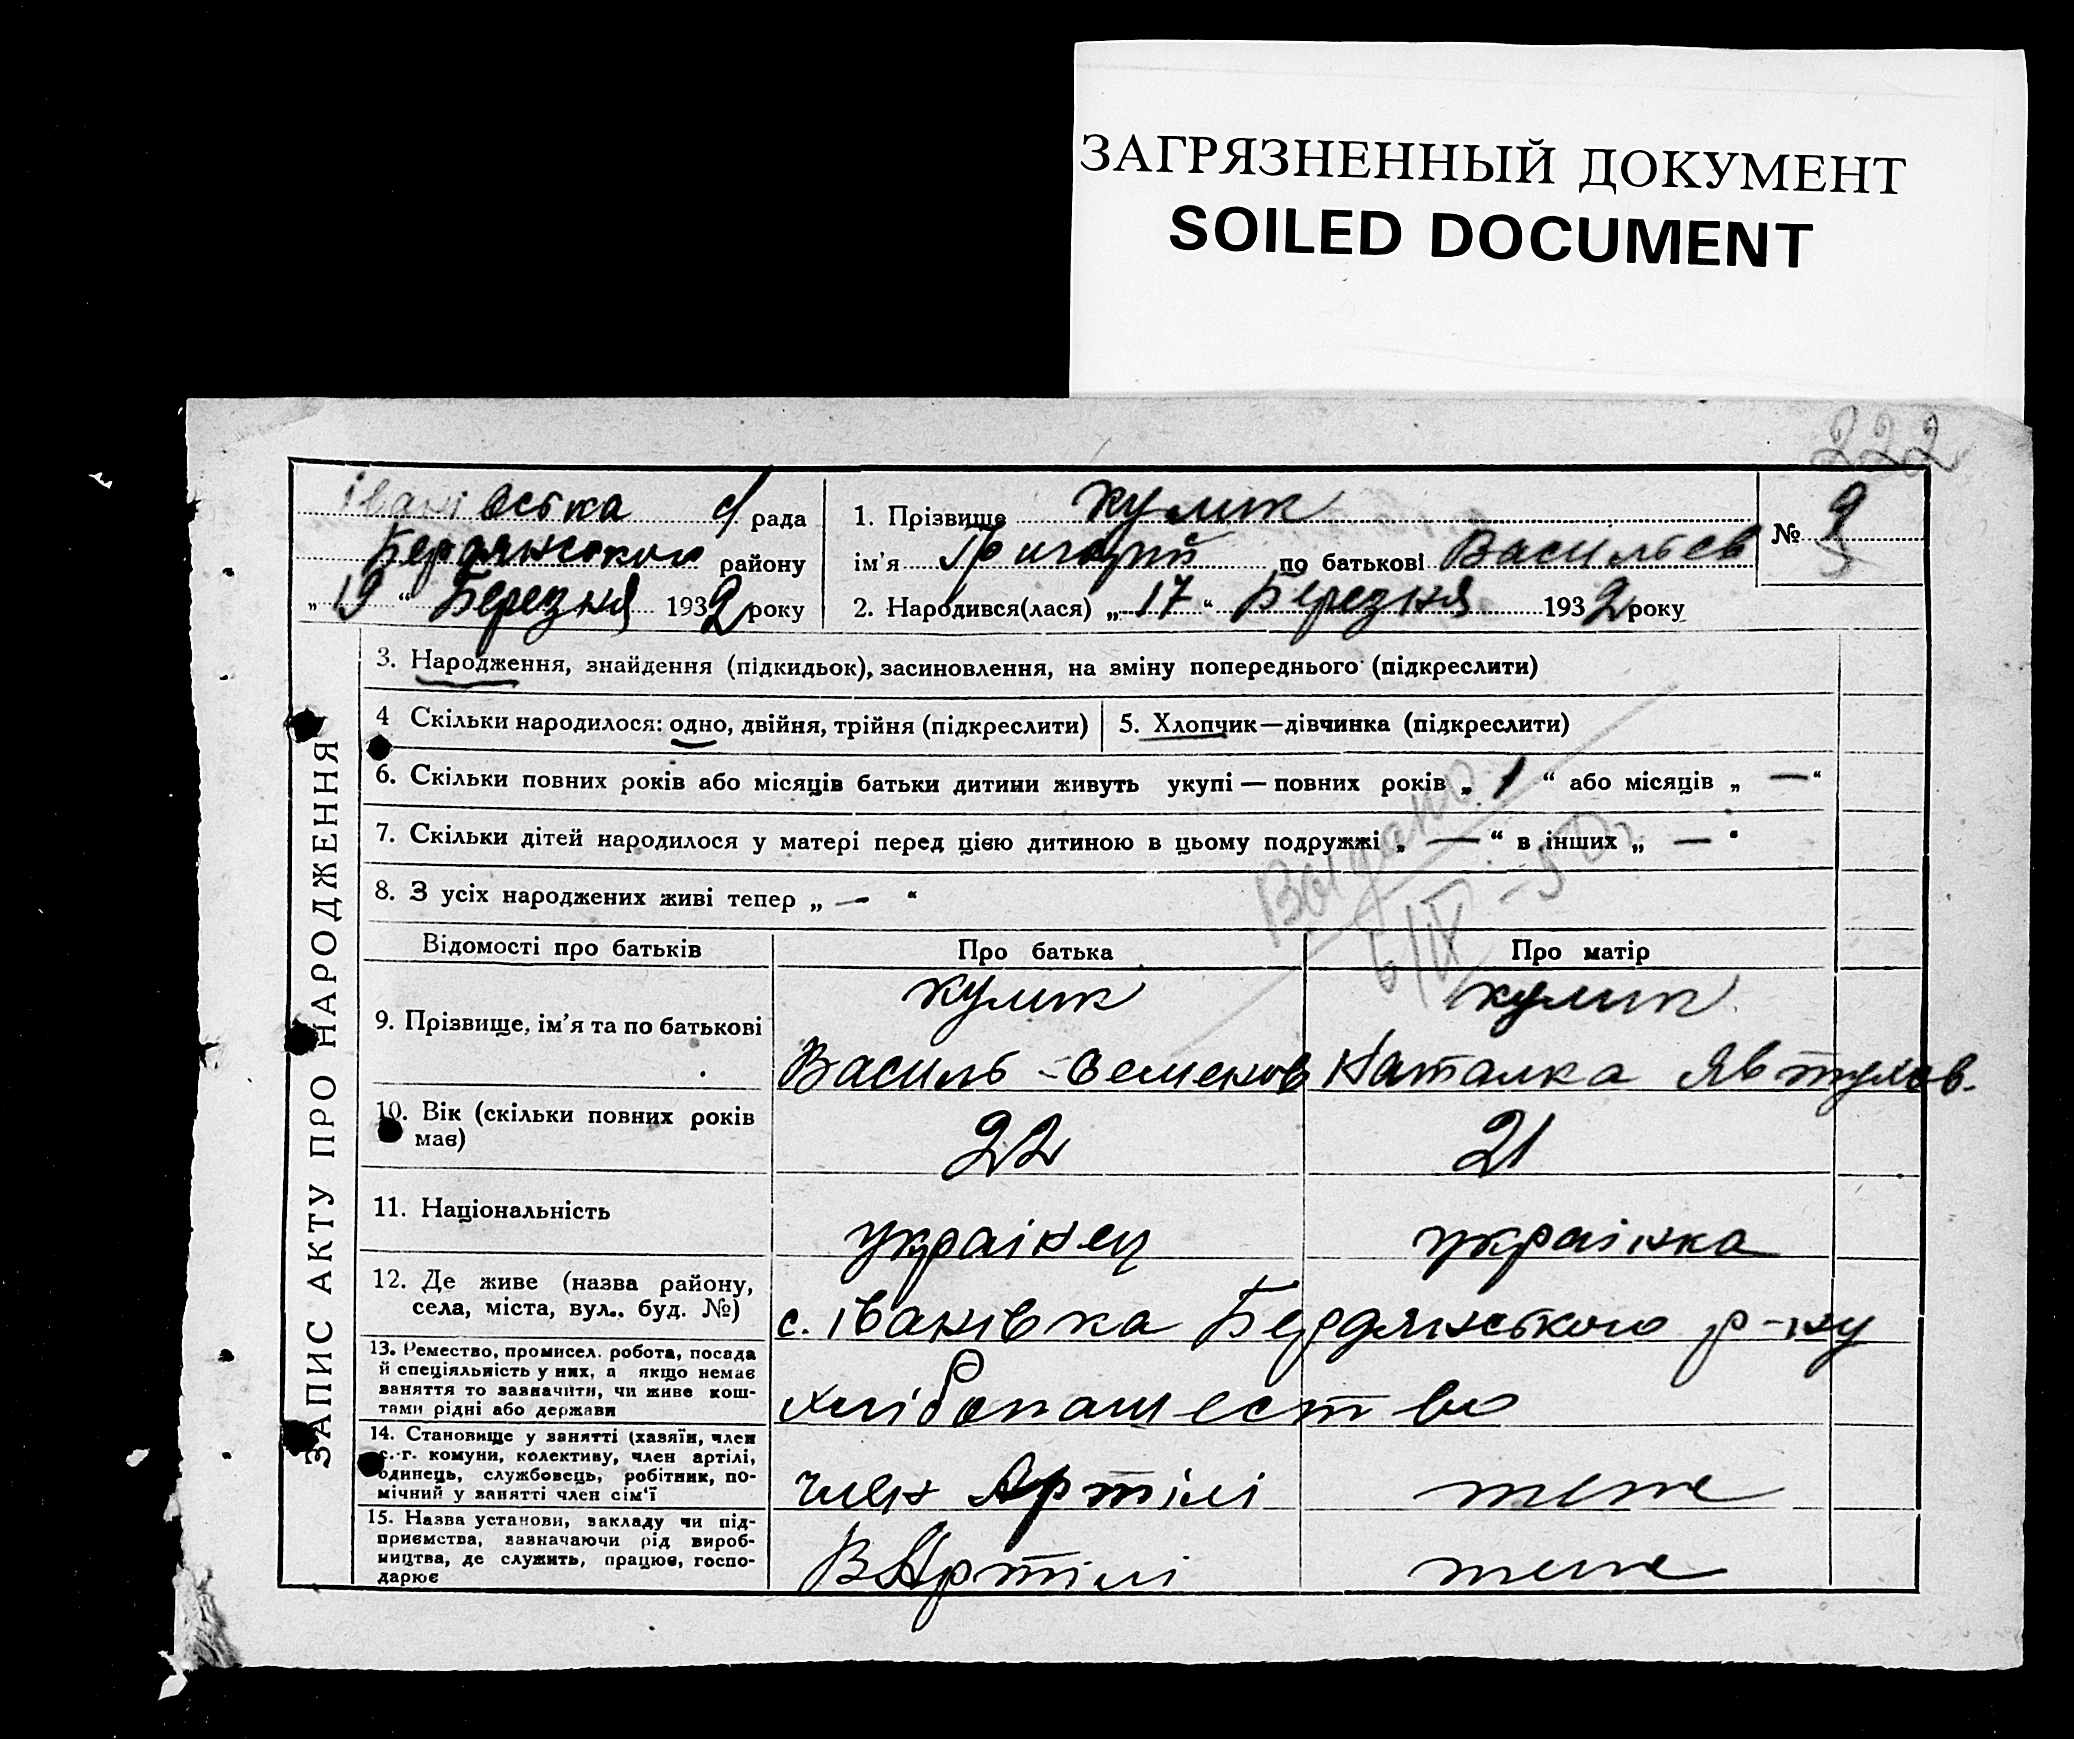 ЗАГРЯЗНЕННЫЙ ДОКУМЕНТ
SOILED DOCUMENT
222
Іванівська с/ рада
Бердянського району
„ 19 “ Березня 1932 року
1. Прізвище Кулик
ім'я Григорій по батькові Васильєв
2. Народився(лася) „ 17 “ Березня 1932 року
№ 9
ЗАПИС АКТУ ПРО НАРОДЖЕННЯ
3. Народження, знайдення (підкидьок), засиновлення, на зміну попереднього (підкреслити)
4 Скільки народилося: одно, двійня, трійня (підкреслити)
5. Хлопчик—дівчинка (підкреслити)
6. Скільки повних років або місяців батьки дитини живуть укупі — повних років „ 1 “ або місяців „ — “
7. Скільки дітей народилося у матері перед цією дитиною в цьому подружжі „ — “ в інших „ — “
8. З усіх народжених живі тепер „ — “
6/IV - 50 г.
Відомості про батьків
Про батька
Про матір
9. Прізвище, ім'я та по батькові
Кулик
Василь Семенов
Кулик
Наталка Явтухов.
10. Вік (скільки повних років
має)
22
21
11. Національність
українец
українка
12. Де живе (назва району,
села, міста, вул.. буд. №)
с. Іванівка Бердянського р-ну
13. Ремество, промисел. робота, посада
й спеціяльність у них, а якщо немає
заняття то зазначити, чи живе кош-
тами рідні або держави
хлібопашество
14. Становище у занятті (хазяїн, член
с.-г. комуни, колективу, член артілі,
одинець, службовець, робітник, по-
мічний у занятті член сім'ї
член Артілі
теже
15. Назва установи, закладу чи під-
приємства, зазначаючи рід вироб-
ництва, де служить, працює, госпо-
дарює
В Артілі
теже